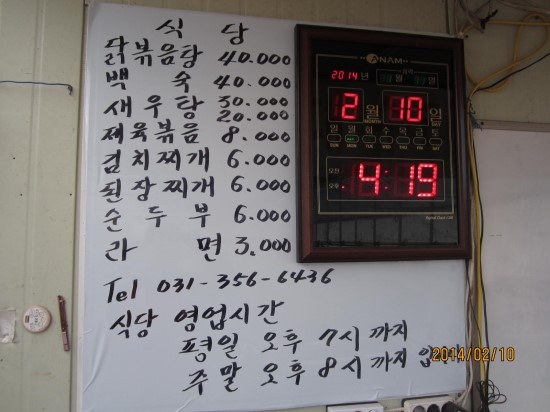 식 당
닭볶음탕 40.000
백 숙 40.000
새우탕 30.000
20.000
제육볶음 8.000
김치찌개 6.000
된장찌개 6.000
순두부 6.000
라 면 3.000
Tel 031-356-6436
식당 영업시간
평일 오후 7시 까지
주말 오후 8시 까지
ANAM
2014년 월 일
2월 10일
일 월 화 수 목 금 토
SUN MON TUE WED THU FRI SAT
오전
오후 4:19
2014/02/10